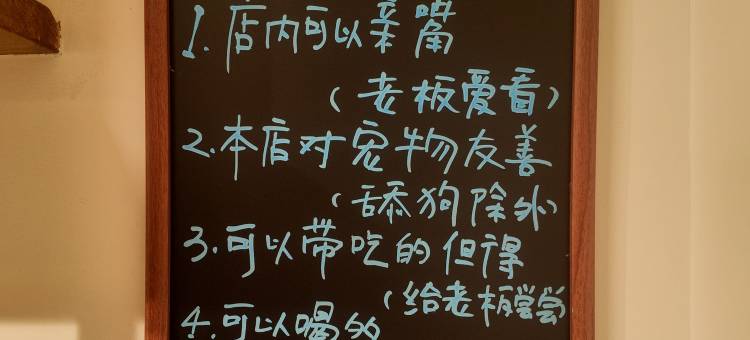 1.店内可以亲嘴
(老板爱看)
2.本店对宠物友善
(舔狗除外)
3.可以带吃的但得
(给老板尝尝
4.可以喝的